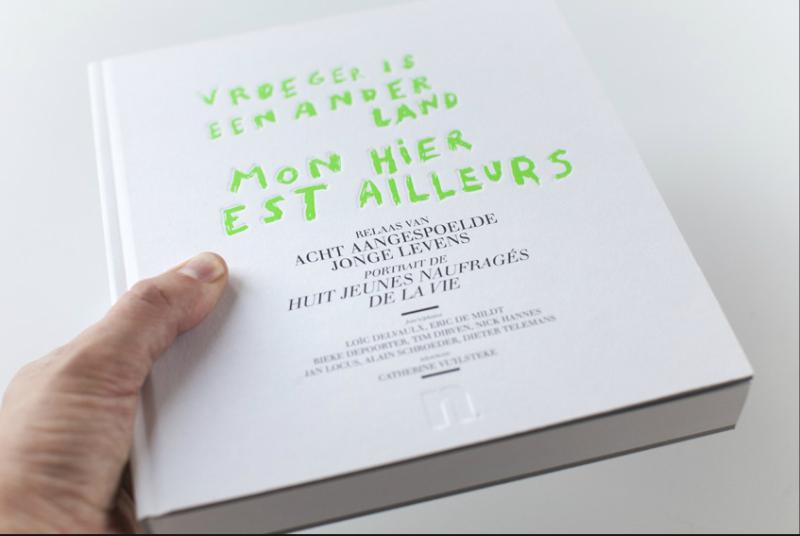 VROEGER IS
EEN ANDER
LAND
MON HiER
EST AILLEURS
RELAAS VAN
ACHT AANGESPOELDE
JONGE LEVENS
PORTRAIT DE
HUIT JEUNES NAUFRAGÉS
DE LA VIE
LOÏC DELVAULX, ERIC DE MILDT
BIEKE DEPOORTER, TIM DIRVEN, NICK HANNES
JAN LOCUS, ALAIN SCHROEDER, DIETER TELEMANS
CATHERINE VUYLSTEKE
n